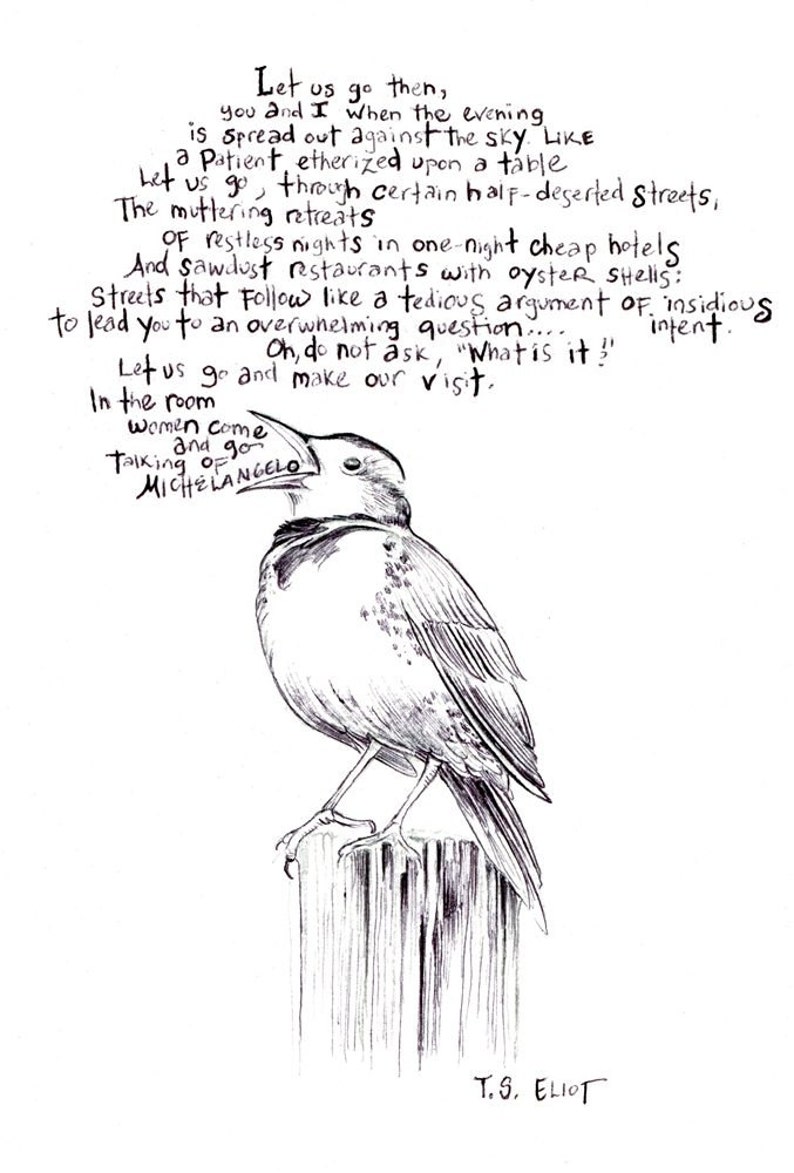 Let us go then,
you and I when the evening
is spread out against the sky. Like
a Patient etherized upon a table
Let us go, through certain half-deserted streets,
The muttering retreats
OF restless nights in one-night cheap hotels
And sawdust restaurants with oyster shells:
Streets that Follow like a tedious argument OF insidious
intent.
to lead you to an overwhelming question....
Oh, do not ask, "What is it?"
Let us go and make our visit.
In the room
women come
and go
Talking OF
MICHELANGELO
T.S. ELIOT